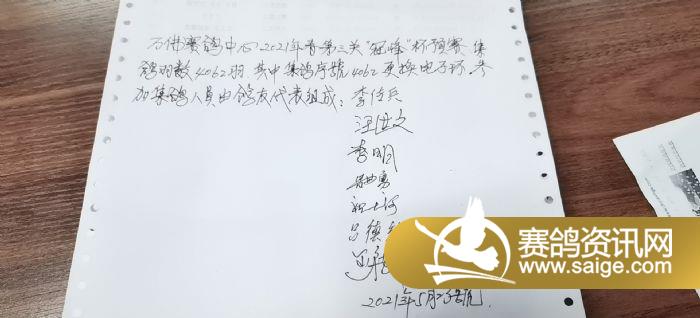 万佛赛鸽中心2021年春第三关"冠峰"杯预赛集
鸽羽数4062羽.其中集鸽序號4062更换电子环.参
加集鸽人员由鸽友代表组成：李传兵
汪世文
李明
吕德
赛鸽资讯网
www.saige.com
2021年5月